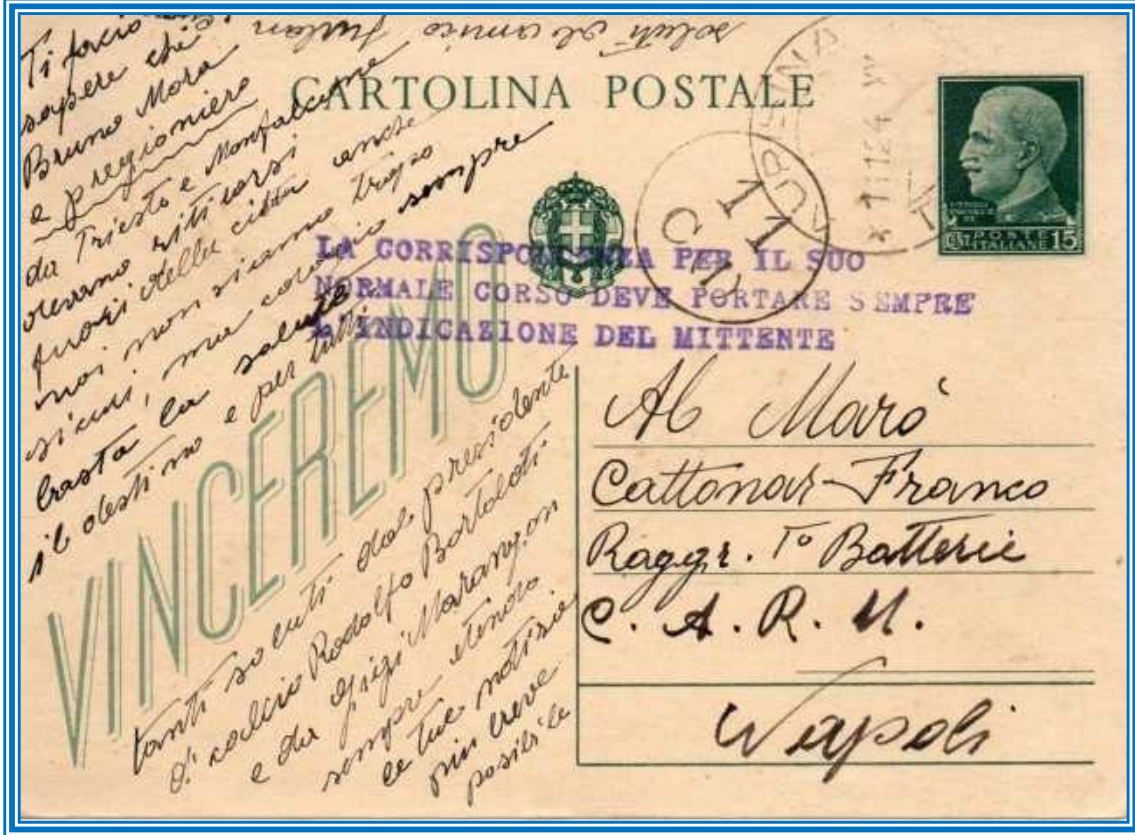 saluti al amico
Ti facio
sapere che
Bruno Mora
e pregioniero
da Trieste e Monfalcone
devano ritirarsi
fuori della citta anche
noi non siamo tropo
sicuri, mu coragio sempre
basta la salute
il destino e per tutti
CARTOLINA POSTALE
POSTE
ITALIANE 15
LA CORRISPONDENZA PER IL SUO
NORMALE CORSO DEVE PORTARE SEMPRE
L'INDICAZIONE DEL MITTENTE
VINCEREMO
tanti saluti dal presidente
di calcio Rodolfo Bortoloti
e da Gigi Marangon
sempre atendo
le tue notisie
piu breve
posibile
Al Marò
Cattonar Franco
Raggr. To Batterie
C. A. R. M.
Napoli